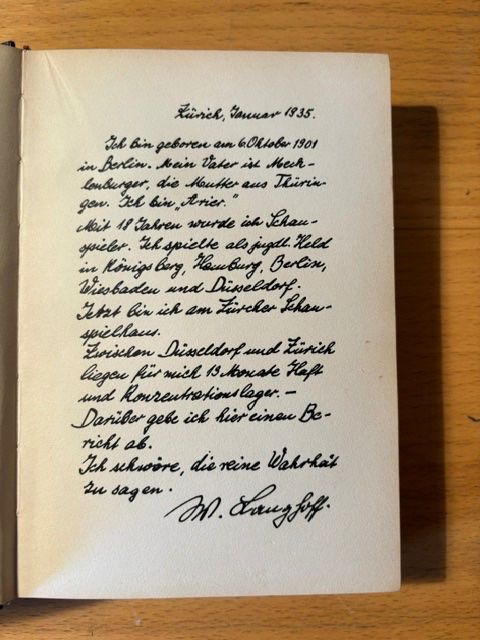 Zürich, Januar 1935.
Ich bin geboren am 6. Oktober 1901
in Berlin. Mein Vater ist Meck-
lenburger, die Mutter aus Thürin-
gen. Ich bin „Arier."
Mit 18 Jahren wurde ich Schau-
spieler. Ich spielte als jugdl. Held
in Königsberg, Hamburg, Berlin,
Wiesbaden und Düsseldorf.
Jetzt bin ich am Zürcher Schau-
spielhaus.
Zwischen Düsseldorf und Zürich
liegen für mich 13 Monate Haft
und Konzentrationslager. –
Darüber gebe ich hier einen Be-
richt ab.
Ich schwöre, die reine Wahrheit
zu sagen.
W. Langhoff.